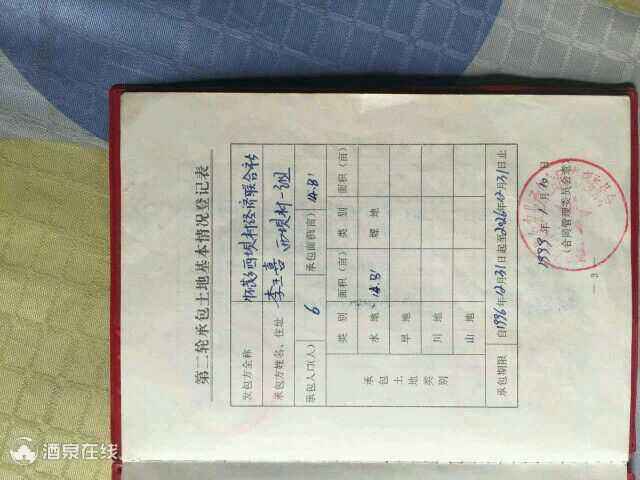 第二轮承包土地基本情况登记表
发包方全称 西坝村经济联合社
承包方姓名、住址 李玉喜 西坝村一组
承包人口(人) 6 承包面积(亩) 14.8
承包土地类别
类别 面积(亩) 类别 面积(亩)
水地 14.8 煤地
旱地
川地
山地
承包期限 自1996年12月31日起至2026年12月31日止
1999年1月10日
(合同管理委员会章)
— 3 —
酒泉在线